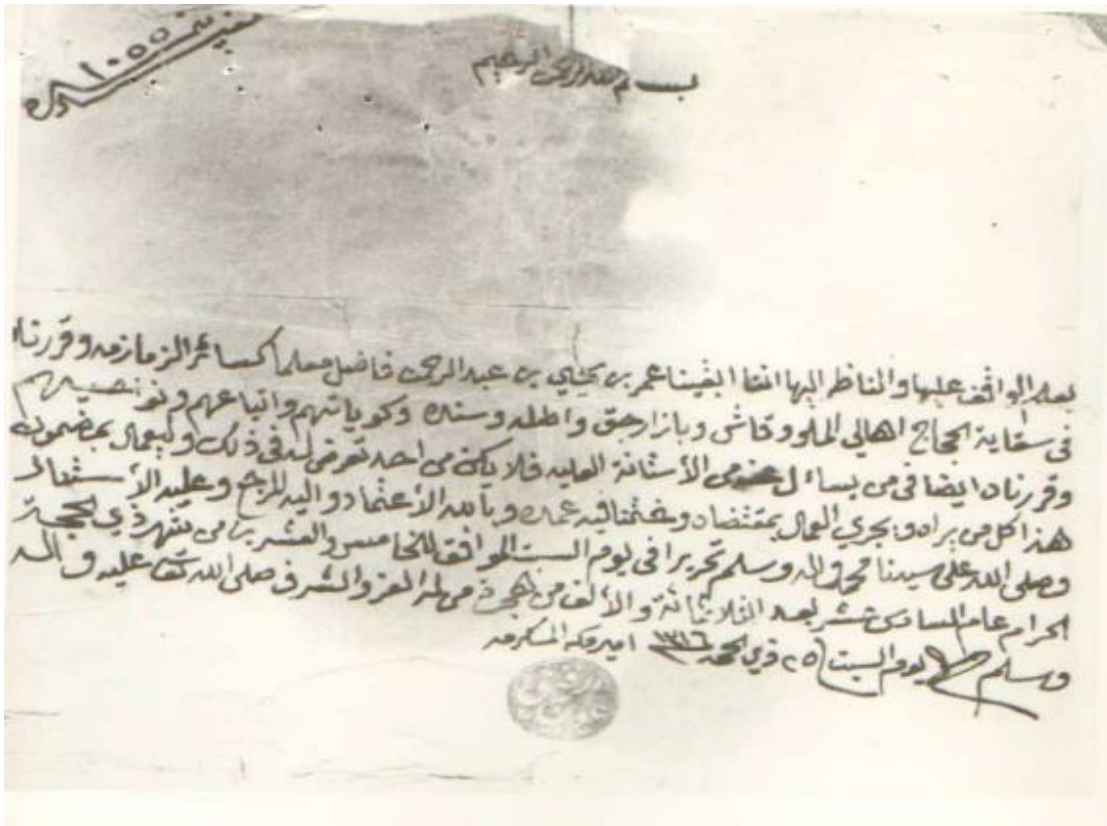 بسم الله الرحمن الرحيم
١٠٥٥
يعلم الواقف عليها والناظر إليها اننا ابقينا عمر بن يحيى بن عبد الرحمن فاضل معلما كسائر الزمازمه وقررناه
في سقاية الحجاج اهالي وبازارجق واتباعهم
وقررناه ايضا في من يسائل من الأستانة العليه فلا يكن من احد تعرض له في ذلك وليعمل بمضمون
هذا كل من يراه ويجري العمل بمقتضاه وبالله الأعتماد واليه المرجع وعليه الأستناد
وصلى الله على سيدنا محمد واله وسلم تحريرا في يوم السبت الموافق للخامس والعشرين من شهر ذي الحجة
الحرام عام السادس عشر بعد الثلاثمائة والألف من هجرة من له العز والشرف صلى الله تعالى عليه واله
وسلم يوم السبت ٢٥ ذي الحجة ١٣١٦ امير مكة المكرمه